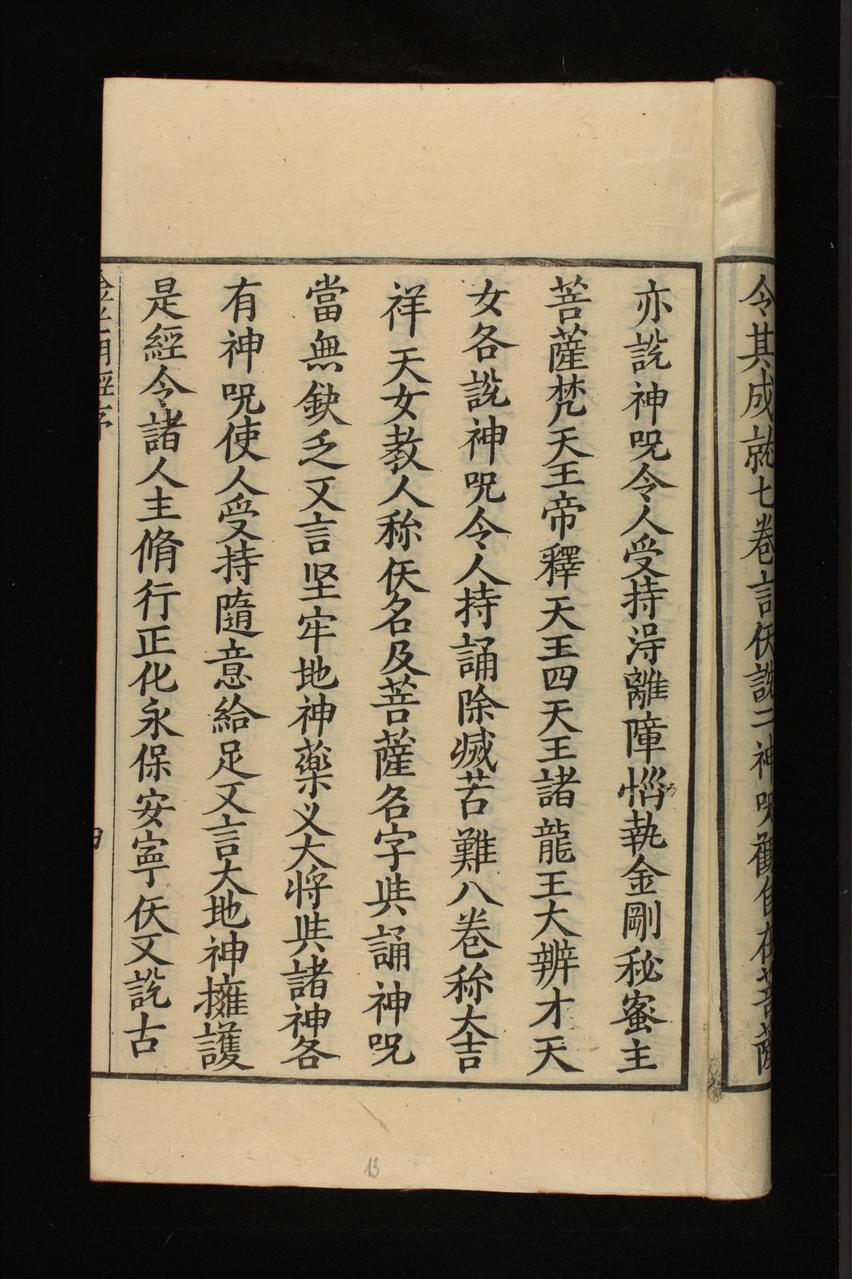 令其成就七卷言仸說二神呪觀自在菩薩
亦説神呪令人受持淂離障惱執金剛秘蜜主
菩薩梵天王帝釋天王四天王諸龍王大辨才天
女各説神呪令人持誦除㓕苦難八卷称大吉
祥天女教人称仸名及菩薩名字㒷誦神呪
當無鈌乏又言坚牢地神藥义大将㒷諸神各
有神呪使人受持隨意給足又言大地神擁護
是經令諸人主脩行正化永保安寧仸又説古
金光明經序
四
13